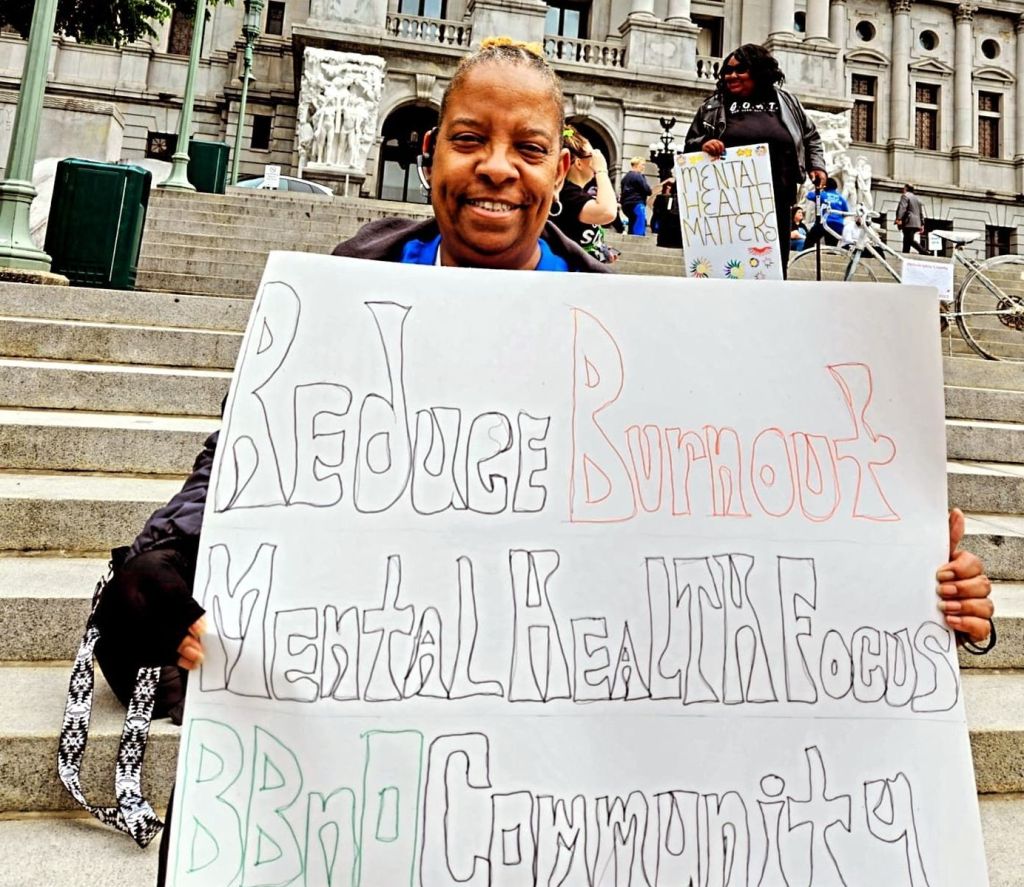 MENTAL
HEALTH
MATTERS
Reduce Burnout
Mental Health Focus
BBnO Community